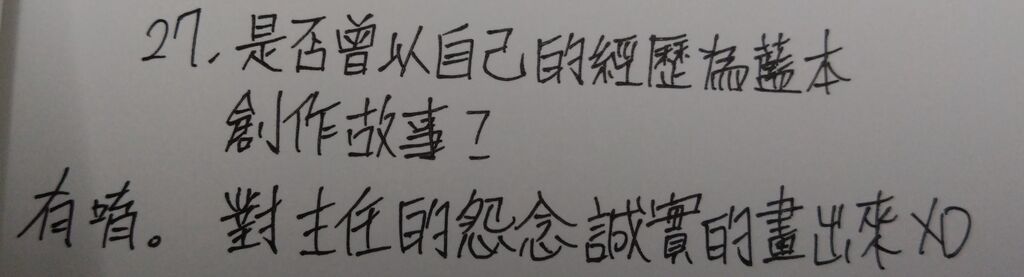 27. 是否曾以自己的經歷為藍本
創作故事?
有唷。 對主任的怨念誠實的畫出來XD